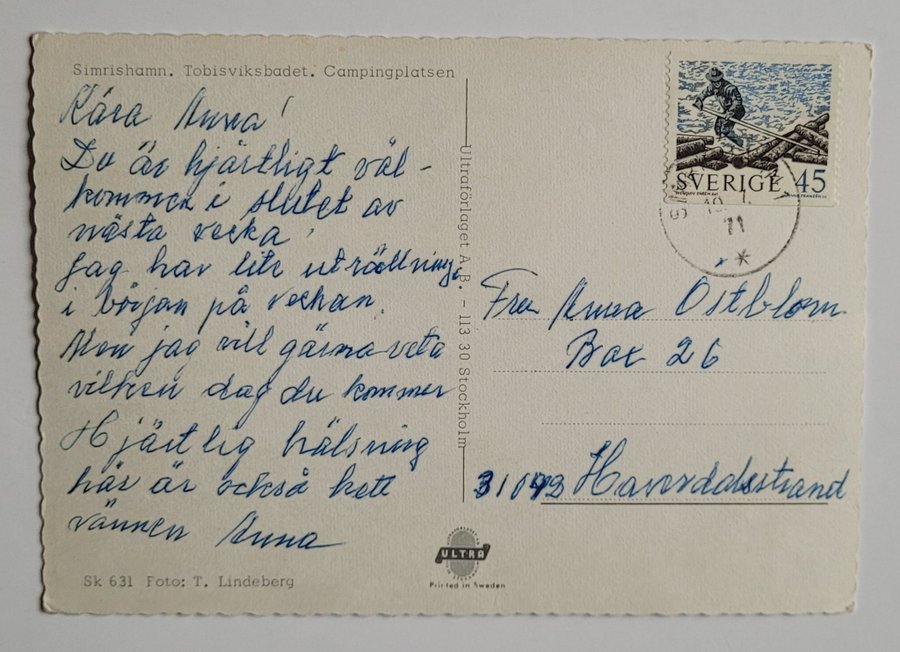 Simrishamn. Tobisviksbadet. Campingplatsen
Kära Anna!
Du är hjärtligt väl-
kommen i slutet av
nästa vecka!
Jag har lite uträttningar
i början på veckan.
Men jag vill gärna veta
vilken dag du kommer
Hjärtlig hälsning
här är också hett
vännen Anna
Sk 631 Foto: T. Lindeberg
Ultraförlaget A.B. - 113 30 Stockholm
ULTRA
Printed in Sweden
SVERIGE 45
71
Fru Anna Ostblom
Box 26
31042 Haverdalsstrand